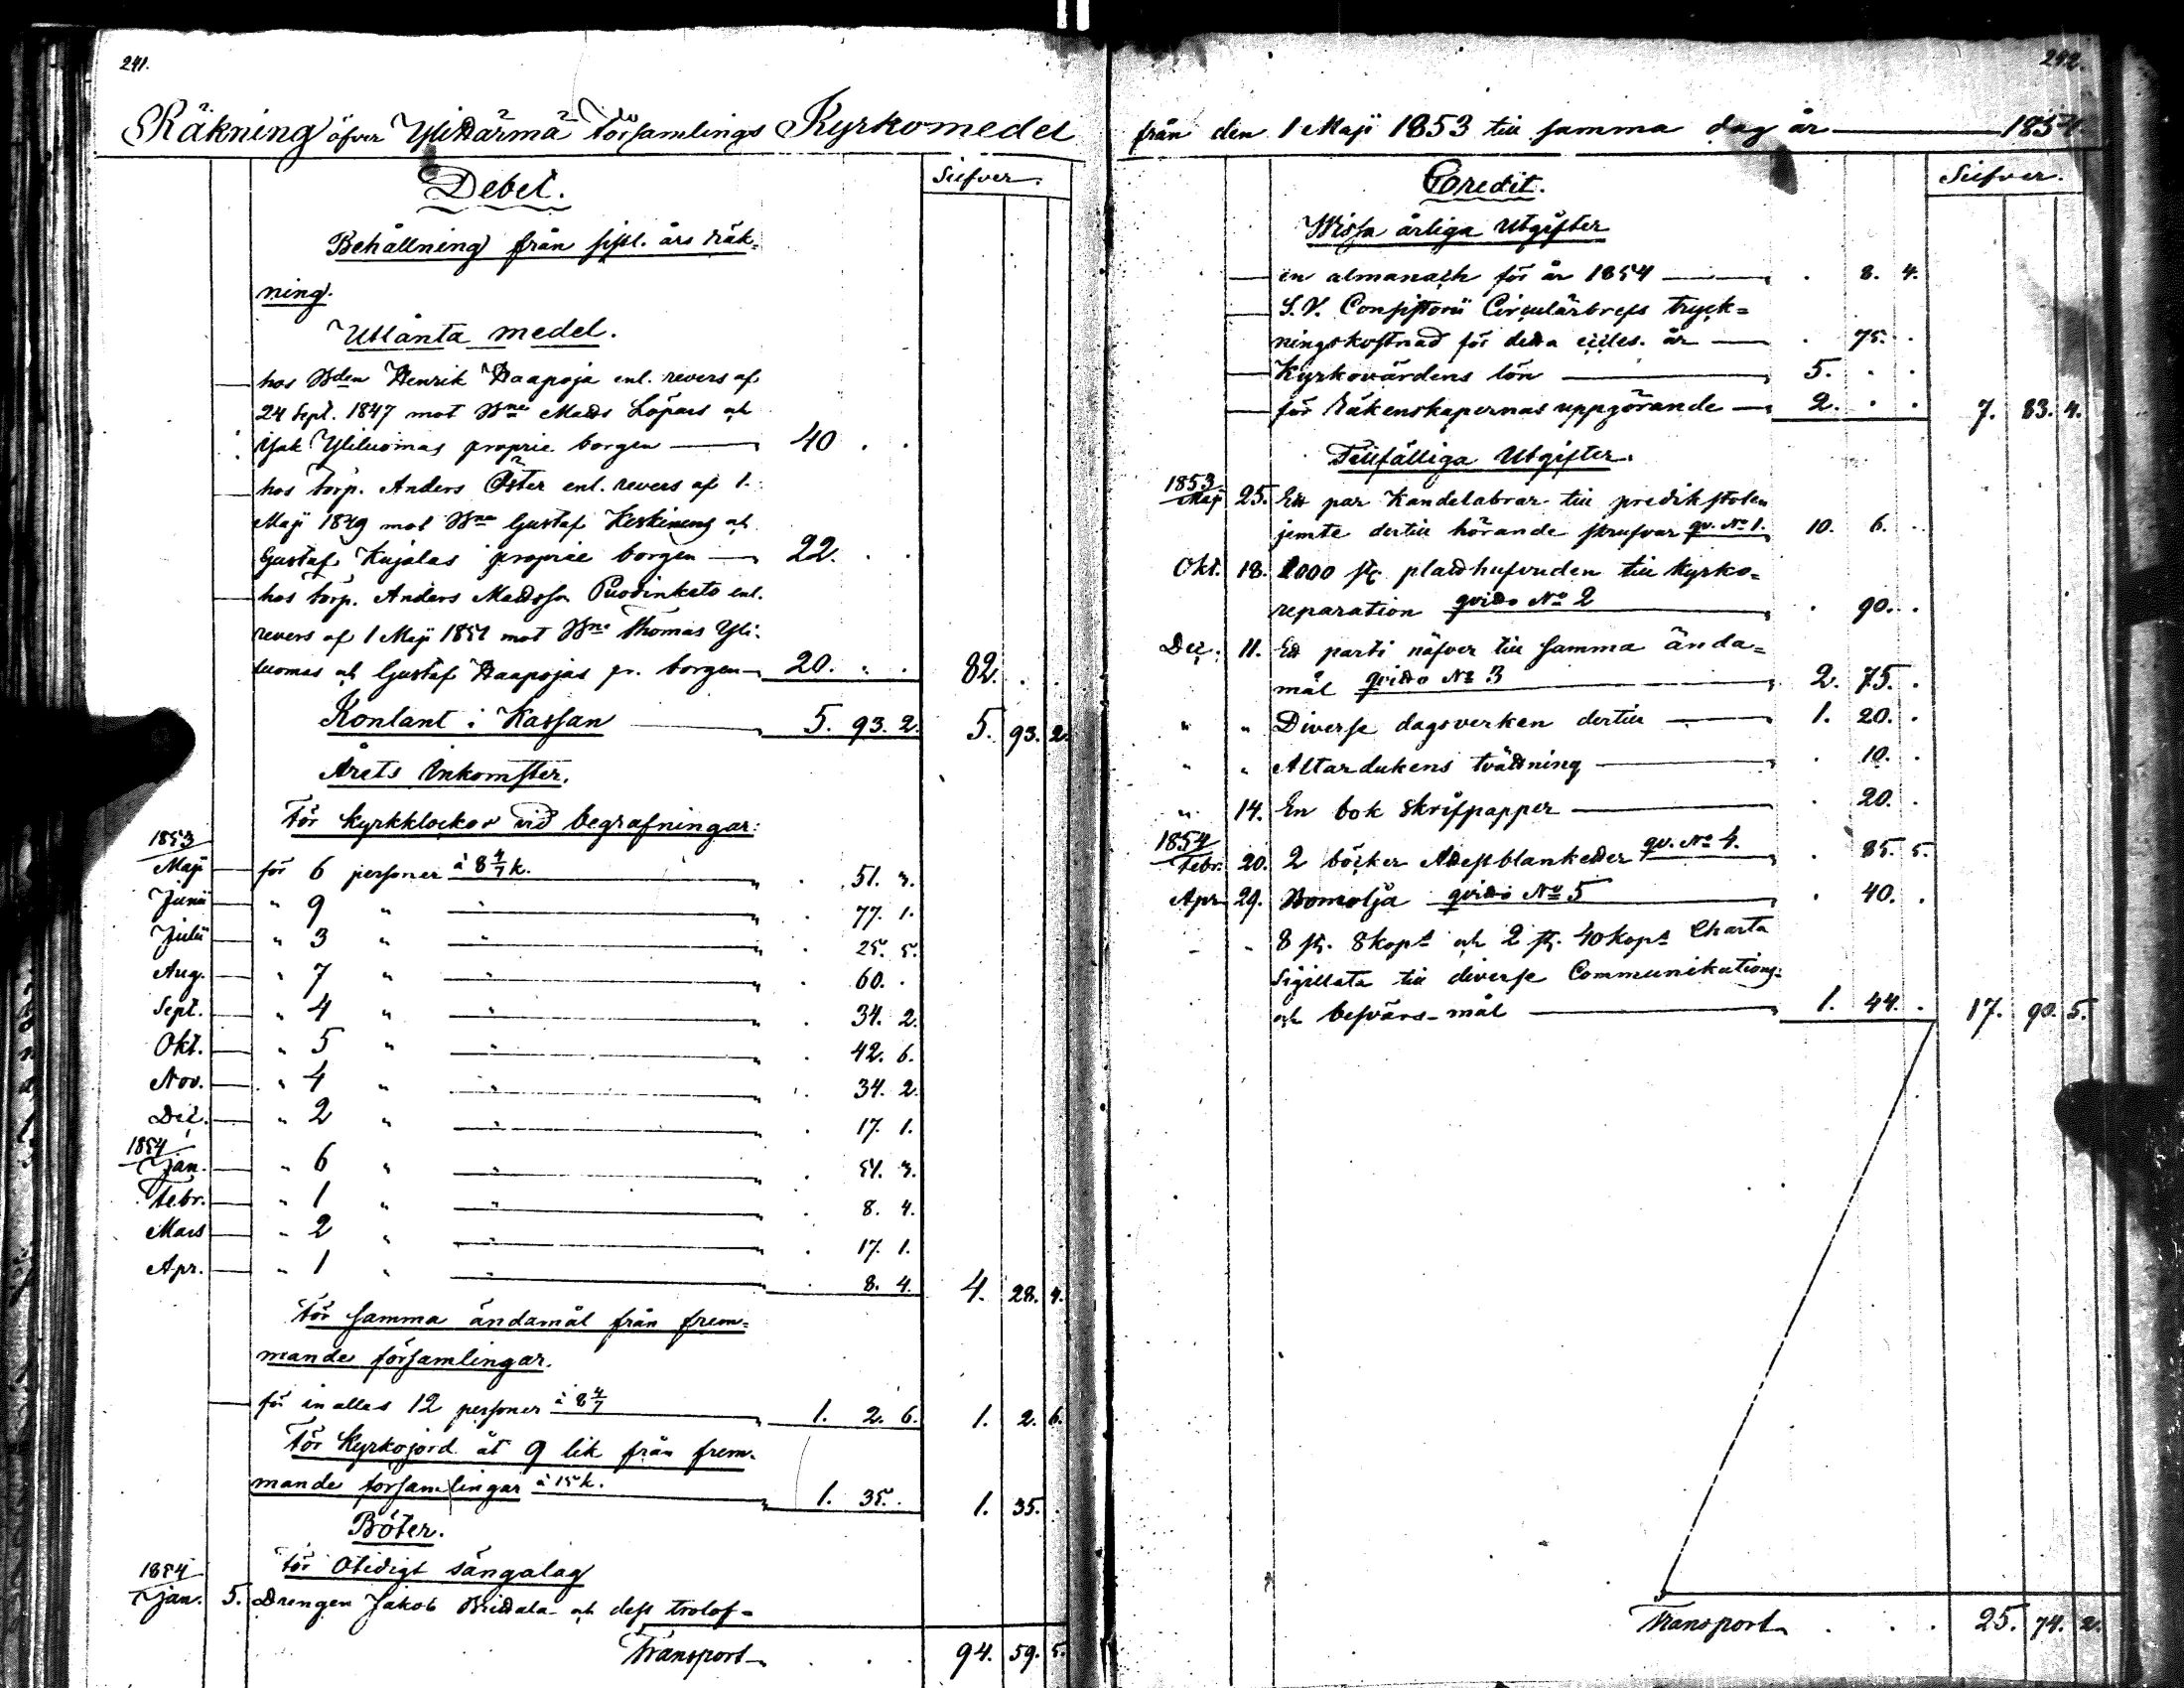 241.
Räkning öfver Ylihärmä Församlings Kyrkomedel
Debet.
Silfver.
Behållning från sistl. års räk-
ning.
Utlånta medel.
hos Bden Henrik Haapoja enl. revers af
24 Sept. 1847 mot Bne Matts Löpars och
Isak Yliluomas proprie borgen 40 . .
hos torp. Anders Öster enl. revers af 1.
Maji 1849 mot Bne Gustaf Keskinens och
Gustaf Kujalas proprie borgen 22. . .
hos torp. Anders Mattsson Puotinkato enl.
revers af 1 Maji 1851 mot Bne Thomas Yli-
luomas och Gustaf Haapojas pr. borgen 20. . . 82. . .
Kontant i Kassan 5. 93. 2. 5. 93. 2.
Årets Inkomster.
För Kyrkklockor vid begrafningar:
1853
Maji för 6 personer à 8 4/7 k. . 51. 3.
Junii " 9 " " . 77. 1.
Julii " 3 " " . 25. 5.
Aug. " 7 " " . 60. .
Sept. " 4 " " . 34. 2.
Okt. " 5 " " . 42. 6.
Nov. " 4 " " . 34. 2.
Dec. " 2 " " . 17. 1.
1854
Jan. " 6 " " . 51. 3.
Febr. " 1 " " . 8. 4.
Mars " 2 " " . 17. 1.
Apr. " 1 " " . 8. 4. 4. 28. 4.
För samma ändamål från frem-
mande församlingar.
för in alles 12 personer à 8 4/7 1. 2. 6. 1. 2. 6.
För Kyrkojord åt 9 lik från frem-
mande församlingar à 15 k. 1. 35. . 1. 35. .
Böter.
för Otidigt sängalag
1854
Jan. 5. Drengen Jakob och dess trolof-
Transport . . . 94. 59. 5.
242.
från den 1 Maji 1853 till samma dag år 1854.
Credit.
Silfver.
Wissa årliga Utgifter
en almanach för år 1854 . 8. 4.
S.V. Consistorii Circulärbrefs tryck-
ningskostnad för detta eccles. år . 75. .
Kyrkovärdens lön 5. . .
för Räkenskapernas uppgörande 2. . . 7. 83. 4.
Tillfälliga Utgifter.
1853
Maji 25. Ett par Kandelabrar till predikstolen
jemte dertill hörande skrufvar qv. No 1. 10. 6. .
Okt. 18. 2000 st. platthufvuden till Kyrko-
reparation qvitto No 2 . 90. .
Dec. 11. Ett parti näfver till samma ända-
mål qvitto No 3 2. 75. .
" " Diverse dagsverken dertill 1. 20. .
" " Altardukens tvättning . 10. .
" 14. En bok Skrifpapper . 20. .
1854
Febr. 20. 2 böcker Attestblanketter qv. No 4. . 85. 5.
Apr. 29. Bomolja qvitto No 5 . 40. .
" " 8 st. 8 kops och 2 st. 40 kops Charta
Sigillata till diverse Communikations-
och besvärs-mål 1. 44. . 17. 90. 5.
Transport . . . 25. 74. 2.